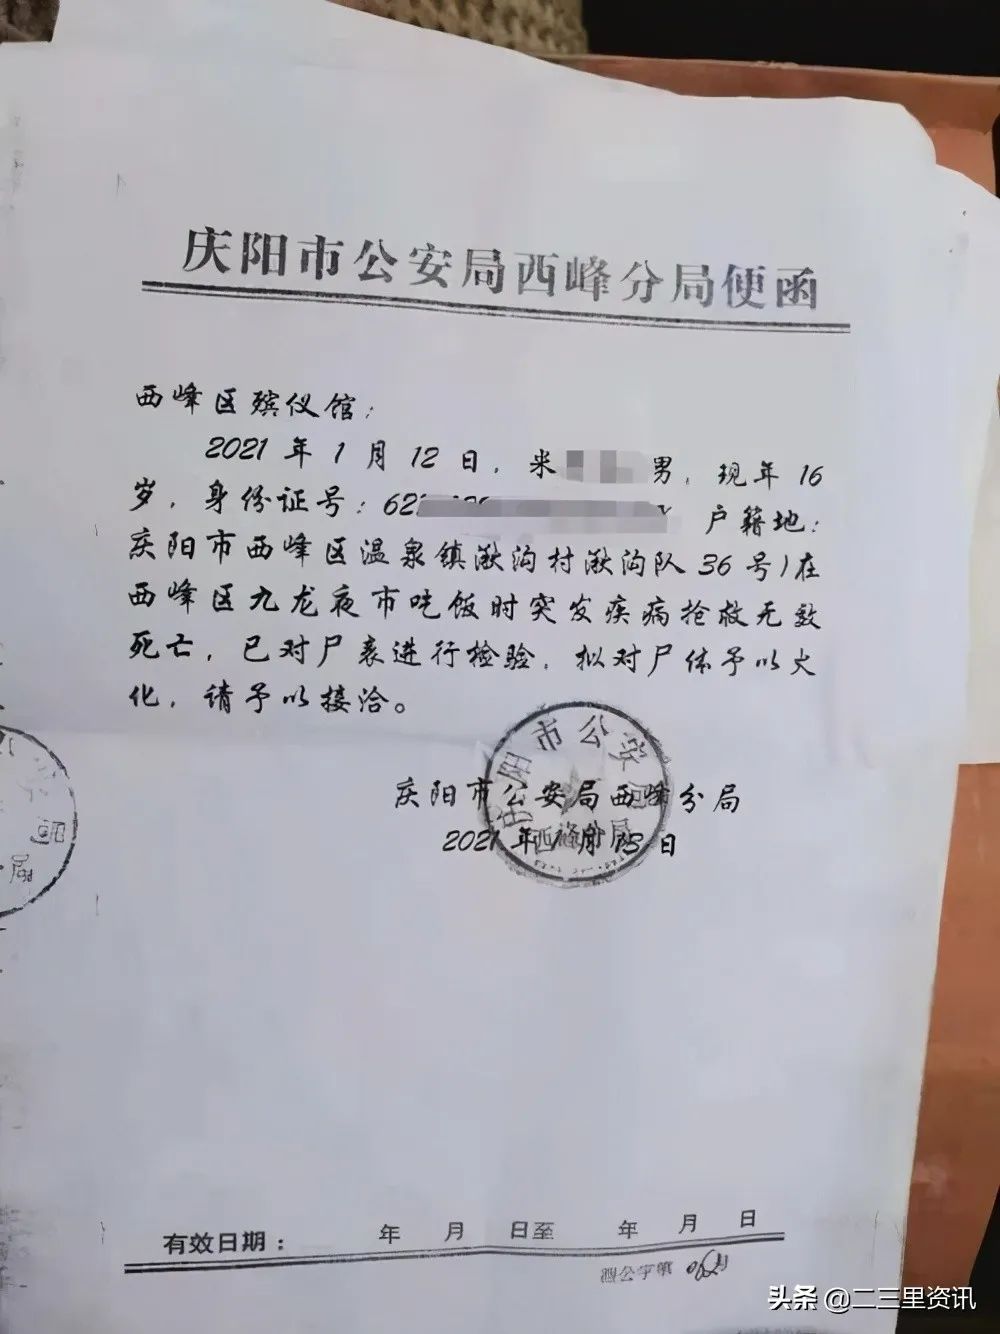 庆阳市公安局西峰分局便函
西峰区殡仪馆：
2021年1月12日，米 男，现年16
岁，身份证号：62 户籍地：
庆阳市西峰区温泉镇湫沟村湫沟队36号）在
西峰区九龙夜市吃饭时突发疾病抢救无效
死亡，已对尸表进行检验，拟对尸体予以火
化，请予以接洽。
庆阳市公安局
西峰分局
庆阳市公安局西峰分局
2021年1月13日
有效日期： 年 月 日至 年 月 日
公字第
头条 @二三里资讯